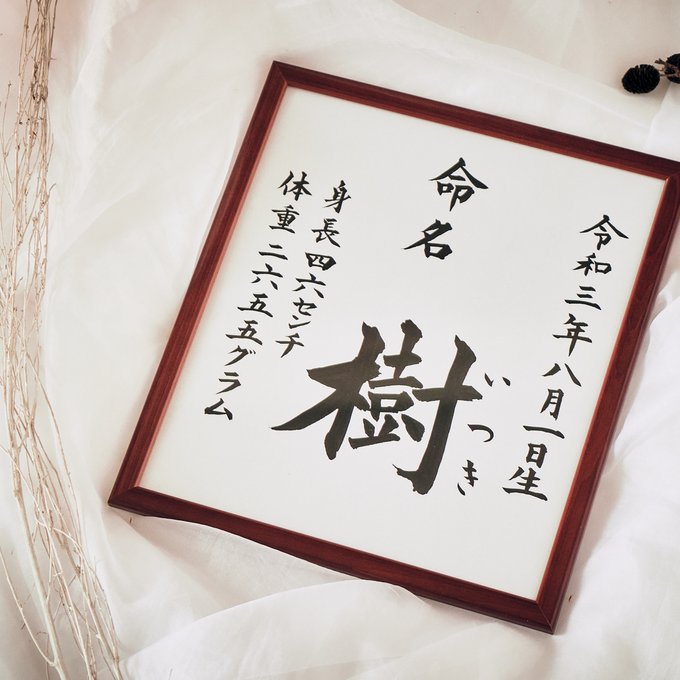 令和三年八月一日生
命名
樹
いつき
身長四六センチ
体重二六五五グラム